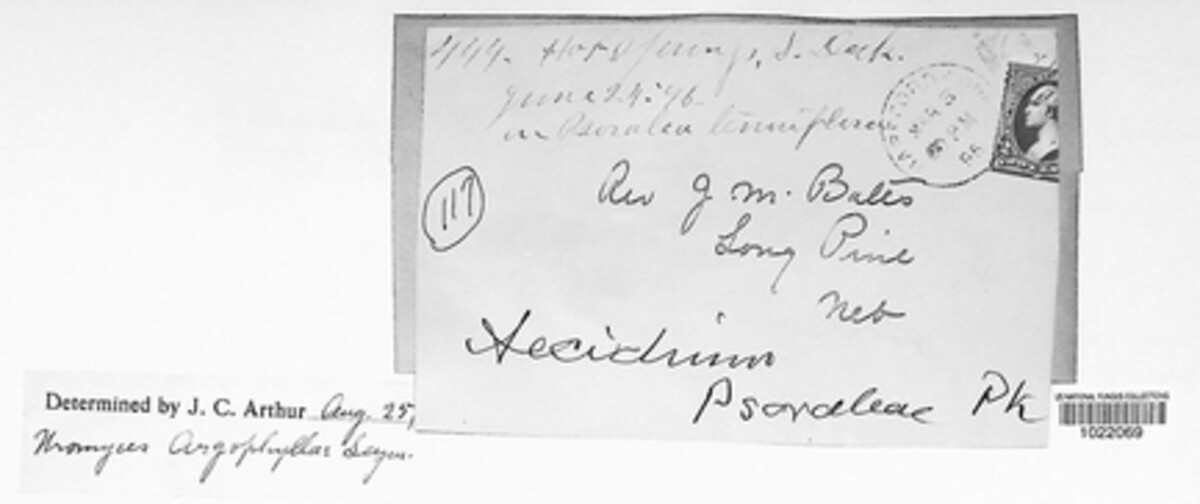 444. Hot Springs, S. Dak.
June 24. '96
on Psoralea tenuiflora
MAR 3
PM
96
117
Rev J M. Bates
Long Pine
Neb
Aecidium
Psoraleae Pk
Determined by J. C. Arthur Aug. 25,
Uromyces Argophyllae Seym.
US NATIONAL FUNGUS COLLECTIONS
1022069